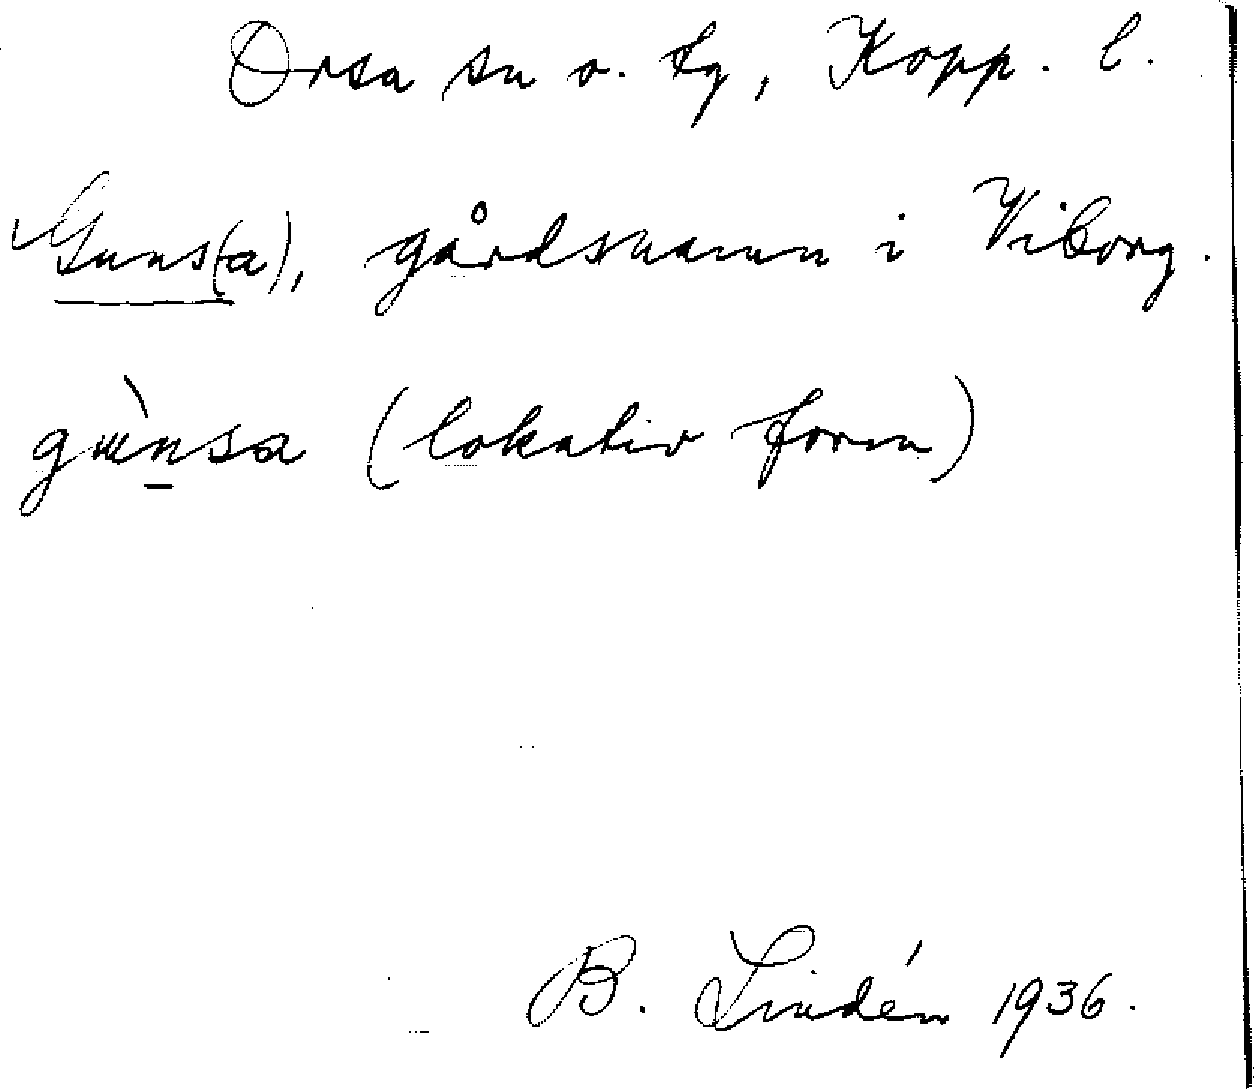 Orsa sn o. tg, Kopp. l.
Guns(a), gårdsnamn i Viborg.
gɯ̀n̲sa (lokativ form)
B. Lindén 1936.